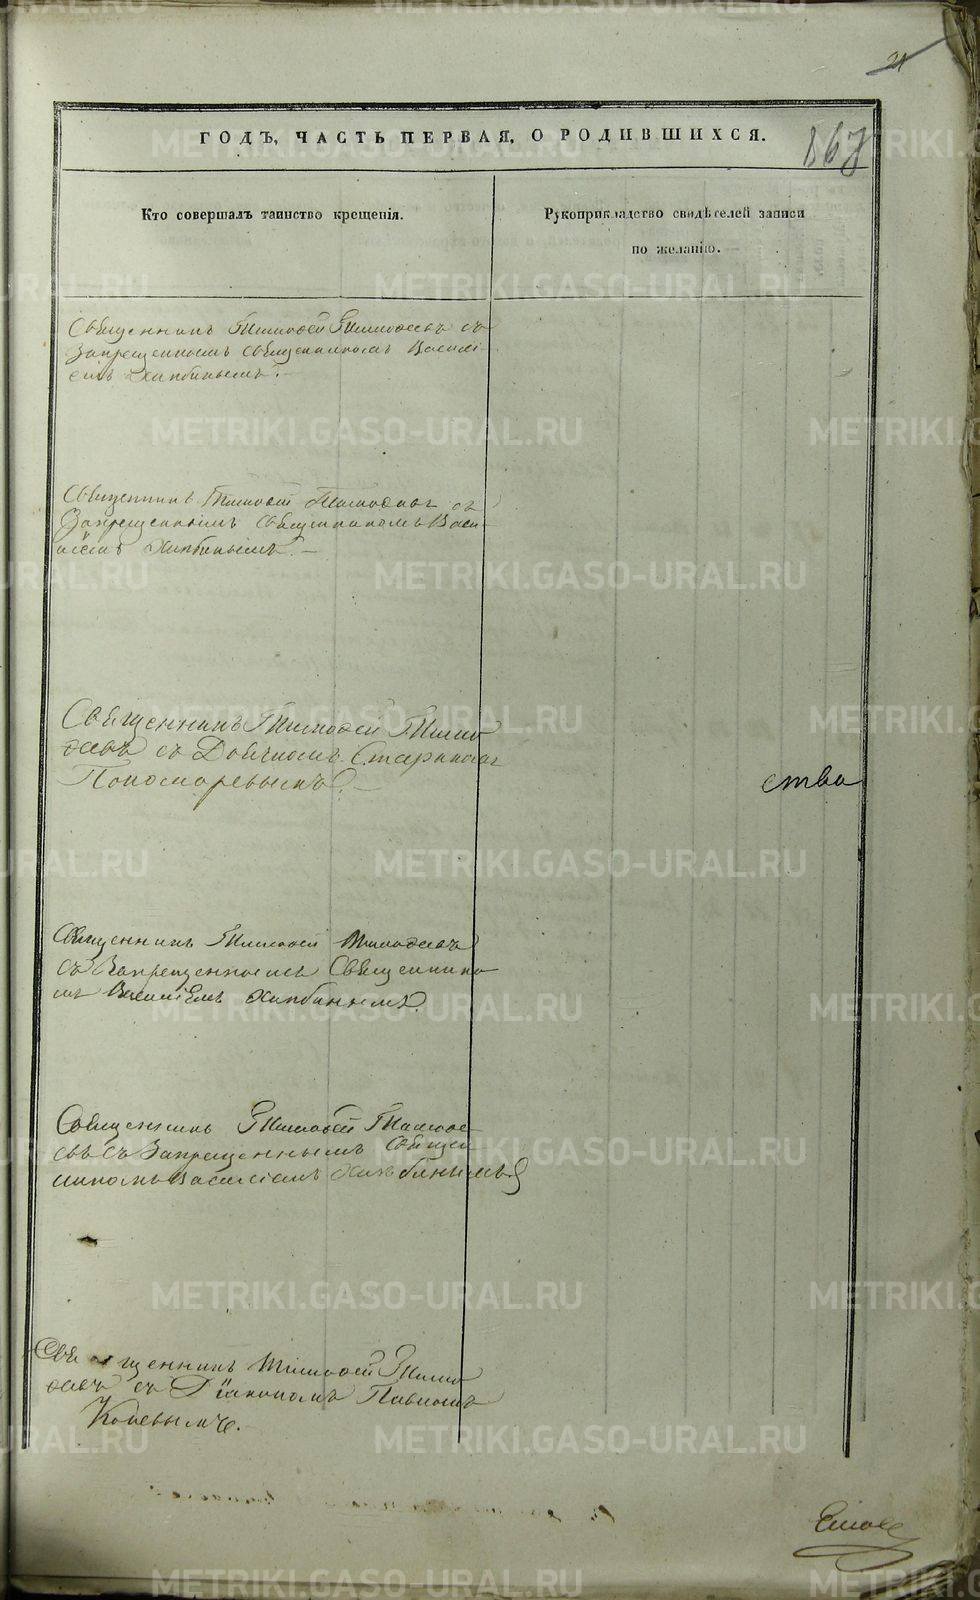 21
ГОДЪ, ЧАСТЬ ПЕРВАЯ, О РОДИВШИХСЯ.
867
Кто совершалъ таинство крещенія.
Рукоприкладство свидѣтелей записи
по желанію.
Священникъ Тимофей Тимофеевъ съ
Запрещеннымъ Священникомъ Васил-
емъ Хлѣбинымъ.
Священникъ Тимофей Тимофеевъ съ
Запрещеннымъ Священникомъ Васи-
ліемъ Хлѣбинымъ.
Священникъ Тимофей Тимо
феевъ съ Дьячкомъ
Пономаревымъ.
ства
Священникъ Тимофей Тимофеевъ
съ Запрещеннымъ Священнико
мъ Василіемъ Хлѣбинымъ.
Священникъ Тимофей Тимофе-
евъ съ Запрещеннымъ Священ
никомъ Василіемъ Хлѣбинымъ.
Священникъ Тимофей Тимо
феевъ съ Діакономъ Павломъ
Коневымъ.
METRIKI.GASO-URAL.RU